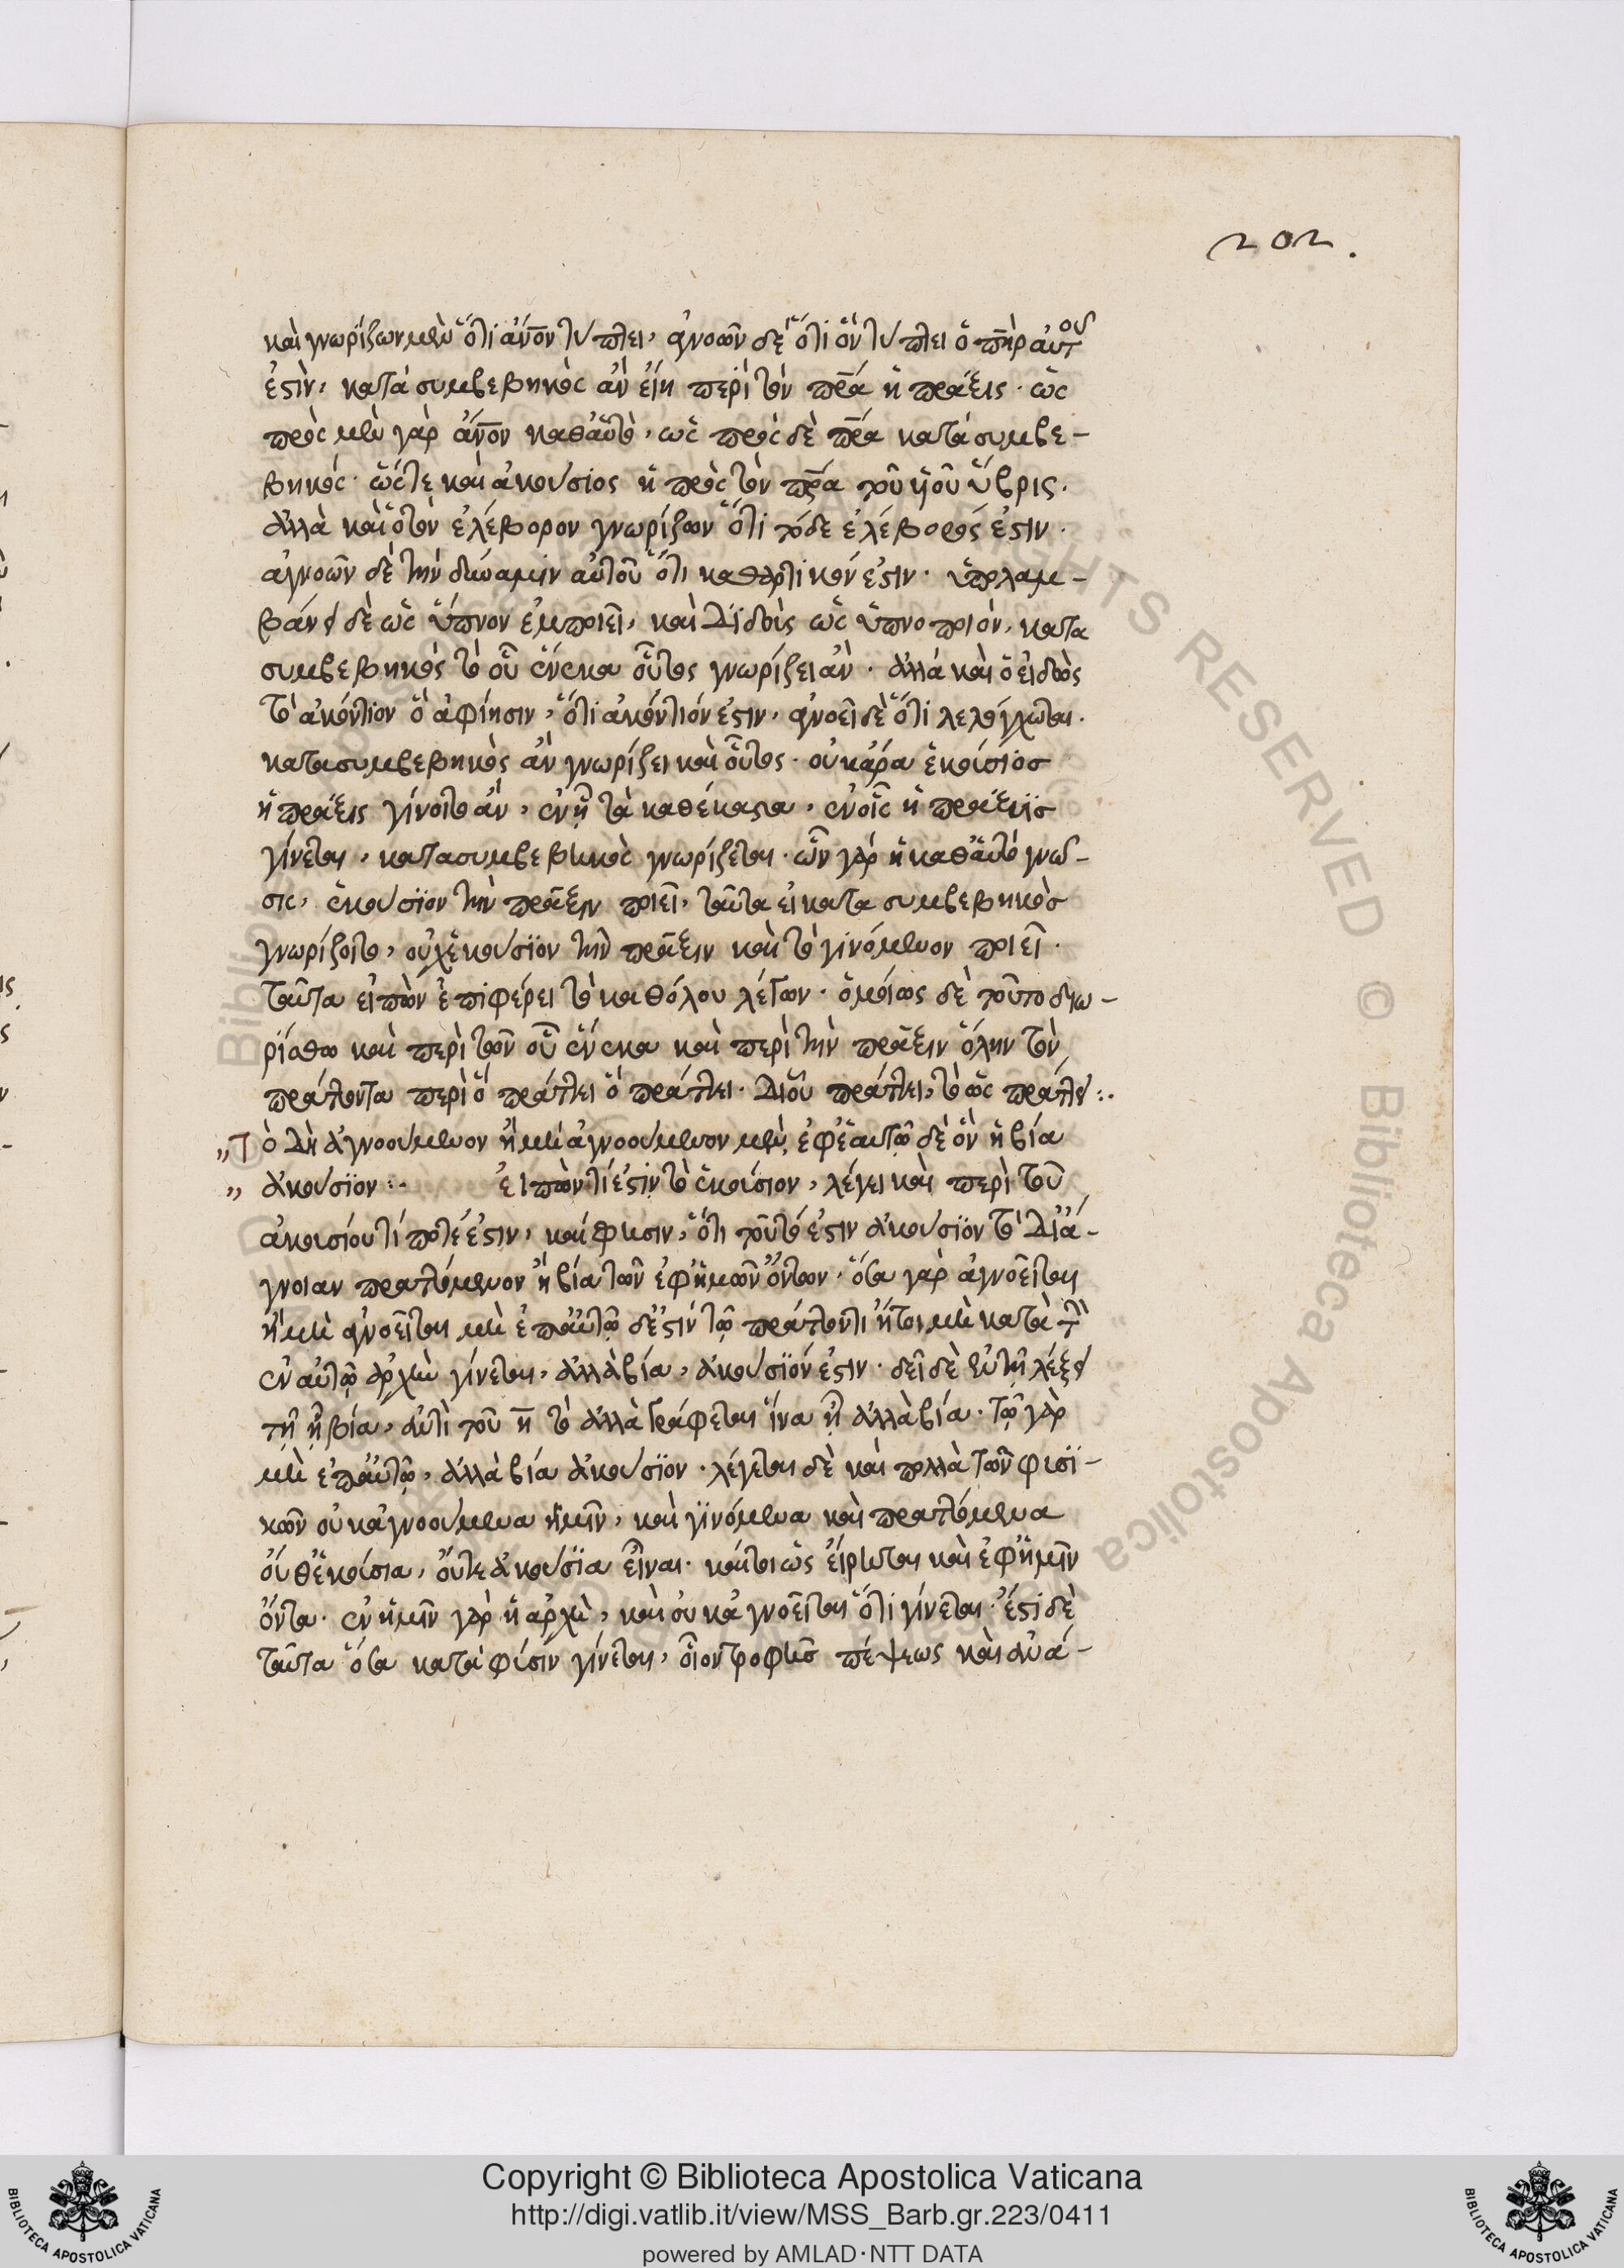 202.
καὶ γνωρίζων μὲν ὅτι ἄνον τύπτει, ἀγνοῶν δὲ ὅτι ὃν τύπτει ὁ πηρ αὐτοῦ
ἐστὶν, κατὰ συμβεβηκὸς ἂν εἴη περὶ τὸν πρα ἡ πράξις. ὡς
πρὸς μὲν γὰρ ἄνον καθ' αὑτὸ, ὡς πρὸς δὲ πρα κατὰ συμβε-
βηκός. ὥστε καὶ ἀκούσιος ἡ πρὸς τὸν πρα τοῦ ὕβρις.
ἀλλὰ καὶ ὁ τὸν ἐλέβορον γνωρίζων ὅτι τόδε ἐλέβορός ἐστιν.
ἀγνοῶν δὲ τὴν δύναμιν αὐτοῦ ὅτι καθαρτικόν ἐστιν. ὑπολαμ-
βάνει δὲ ὡς ὕπνον ἐμποιεῖ, καὶ διδοὺς ὡς ὑπνοποιὸν, κατὰ
συμβεβηκὸς τὸ οὗ ἕνεκα οὗτος γνωρίζει ἂν. ἀλλὰ καὶ ὁ εἰδὼς
τὸ ἀκόντιον ὃ ἀφίησιν, ὅτι ἀκόντιόν ἐστιν, ἀγνοεῖ δὲ ὅτι λελόγχωται.
κατὰ συμβεβηκὸς ἂν γνωρίζει καὶ οὗτος. οὐκ ἄρα ἑκούσιος
ἡ πράξις γίνοιτο ἂν, ἐν ᾗ τὰ καθέκαστα, ἐν οἷς ἡ πράξις
γίνεται, κατὰ συμβεβηκὸς γνωρίζεται. ὧν γὰρ ἡ καθ' αὑτὸ γνῶ-
σις, ἑκούσιον τὴν πρᾶξιν ποιεῖ, ταῦτα εἰ κατὰ συμβεβηκὸς
γνωρίζοιτο, οὐχ ἑκούσιον τὴν πρᾶξιν καὶ τὸ γινόμενον ποιεῖ.
ταῦτα εἰπὼν ἐπιφέρει τὸ καθόλου λέγων. ὁμοίως δὲ τοῦτο διω-
ρίσθω καὶ περὶ τῶν οὗ ἕνεκα καὶ περὶ τὴν πρᾶξιν ὅλην τὸν
πράττοντα περὶ ὃ πράττει ὃ πράττει. δι' οὗ πράττει, τὸ ὡς πράττει:.
„ Τὸ δὴ ἀγνοούμενον ἢ μὴ ἀγνοούμενον μὲν, ἐφ' ἑαυτῷ δὲ ὂν ἢ βία
„ ἀκούσιον:. εἰπὼν τί ἐστὶν τὸ ἑκούσιον, λέγει καὶ περὶ τοῦ
ἀκουσίου τί ποτέ ἐστιν, καί φησιν, ὅτι τοῦτό ἐστιν ἀκούσιον τὸ δι' ἄ-
γνοιαν πραττόμενον ἢ βία τῶν ἐφ' ἡμῶν ὄντων. ὅσα γὰρ ἀγνοεῖται
ἢ μὴ ἀγνοεῖται μὴ ἐπ' αὐτῷ δέ ἐστιν τῷ πράττοντι ἤτοι μὴ κατὰ τὴν
ἐν αὐτῷ ἀρχὴν γίνεται, ἀλλὰ βία, ἀκούσιόν ἐστιν. δεῖ δὲ ἐν τῇ λέξει
τῇ ἢ βία, ἀντὶ τοῦ ἢ τὸ ἀλλὰ γράφεται ἵνα ᾖ ἀλλὰ βία. τῷ γὰρ
μὴ ἐπ' αὐτῷ, ἀλλὰ βία ἀκούσιον. λέγεται δὲ καὶ πολλὰ τῶν φυσι-
κῶν οὐκ ἀγνοούμενα ἡμῖν, καὶ γινόμενα καὶ πραττόμενα
οὔθ' ἑκούσια, οὔτε ἀκούσια εἶναι. καίτοι ὡς εἴρηται καὶ ἐφ' ἡμῖν
ὄντα. ἐν ἡμῖν γὰρ ἡ ἀρχὴ, καὶ οὐκ ἀγνοεῖται ὅτι γίνεται. ἔστι δὲ
ταῦτα ὅσα κατὰ φύσιν γίνεται, οἷον τροφῆς πέψεως καὶ αὐα-
Copyright © Biblioteca Apostolica Vaticana
http://digi.vatlib.it/view/MSS_Barb.gr.223/0411
powered by AMLAD·NTT DATA